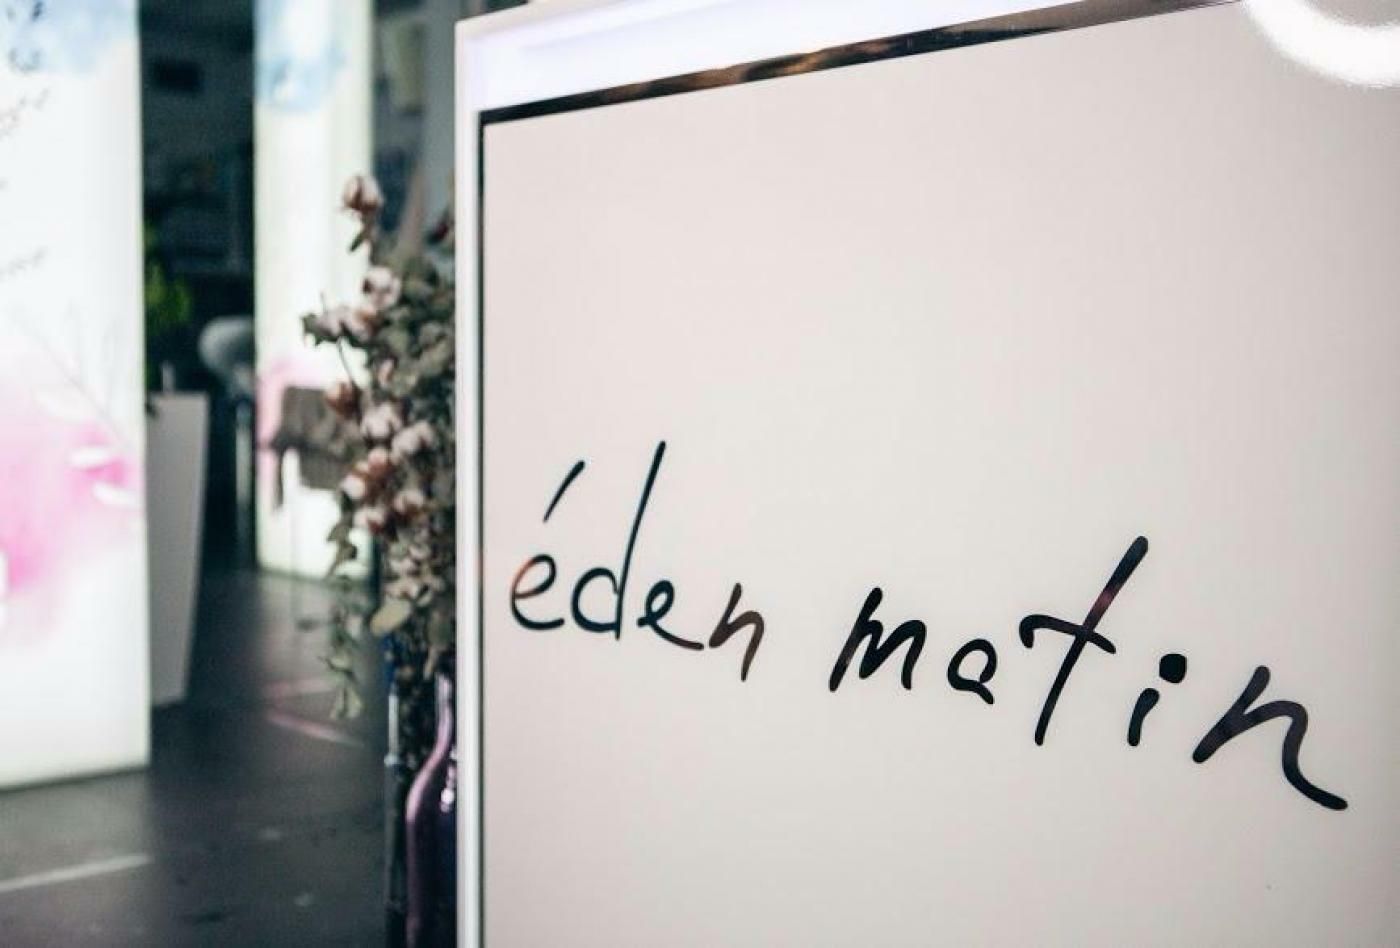 éden matin